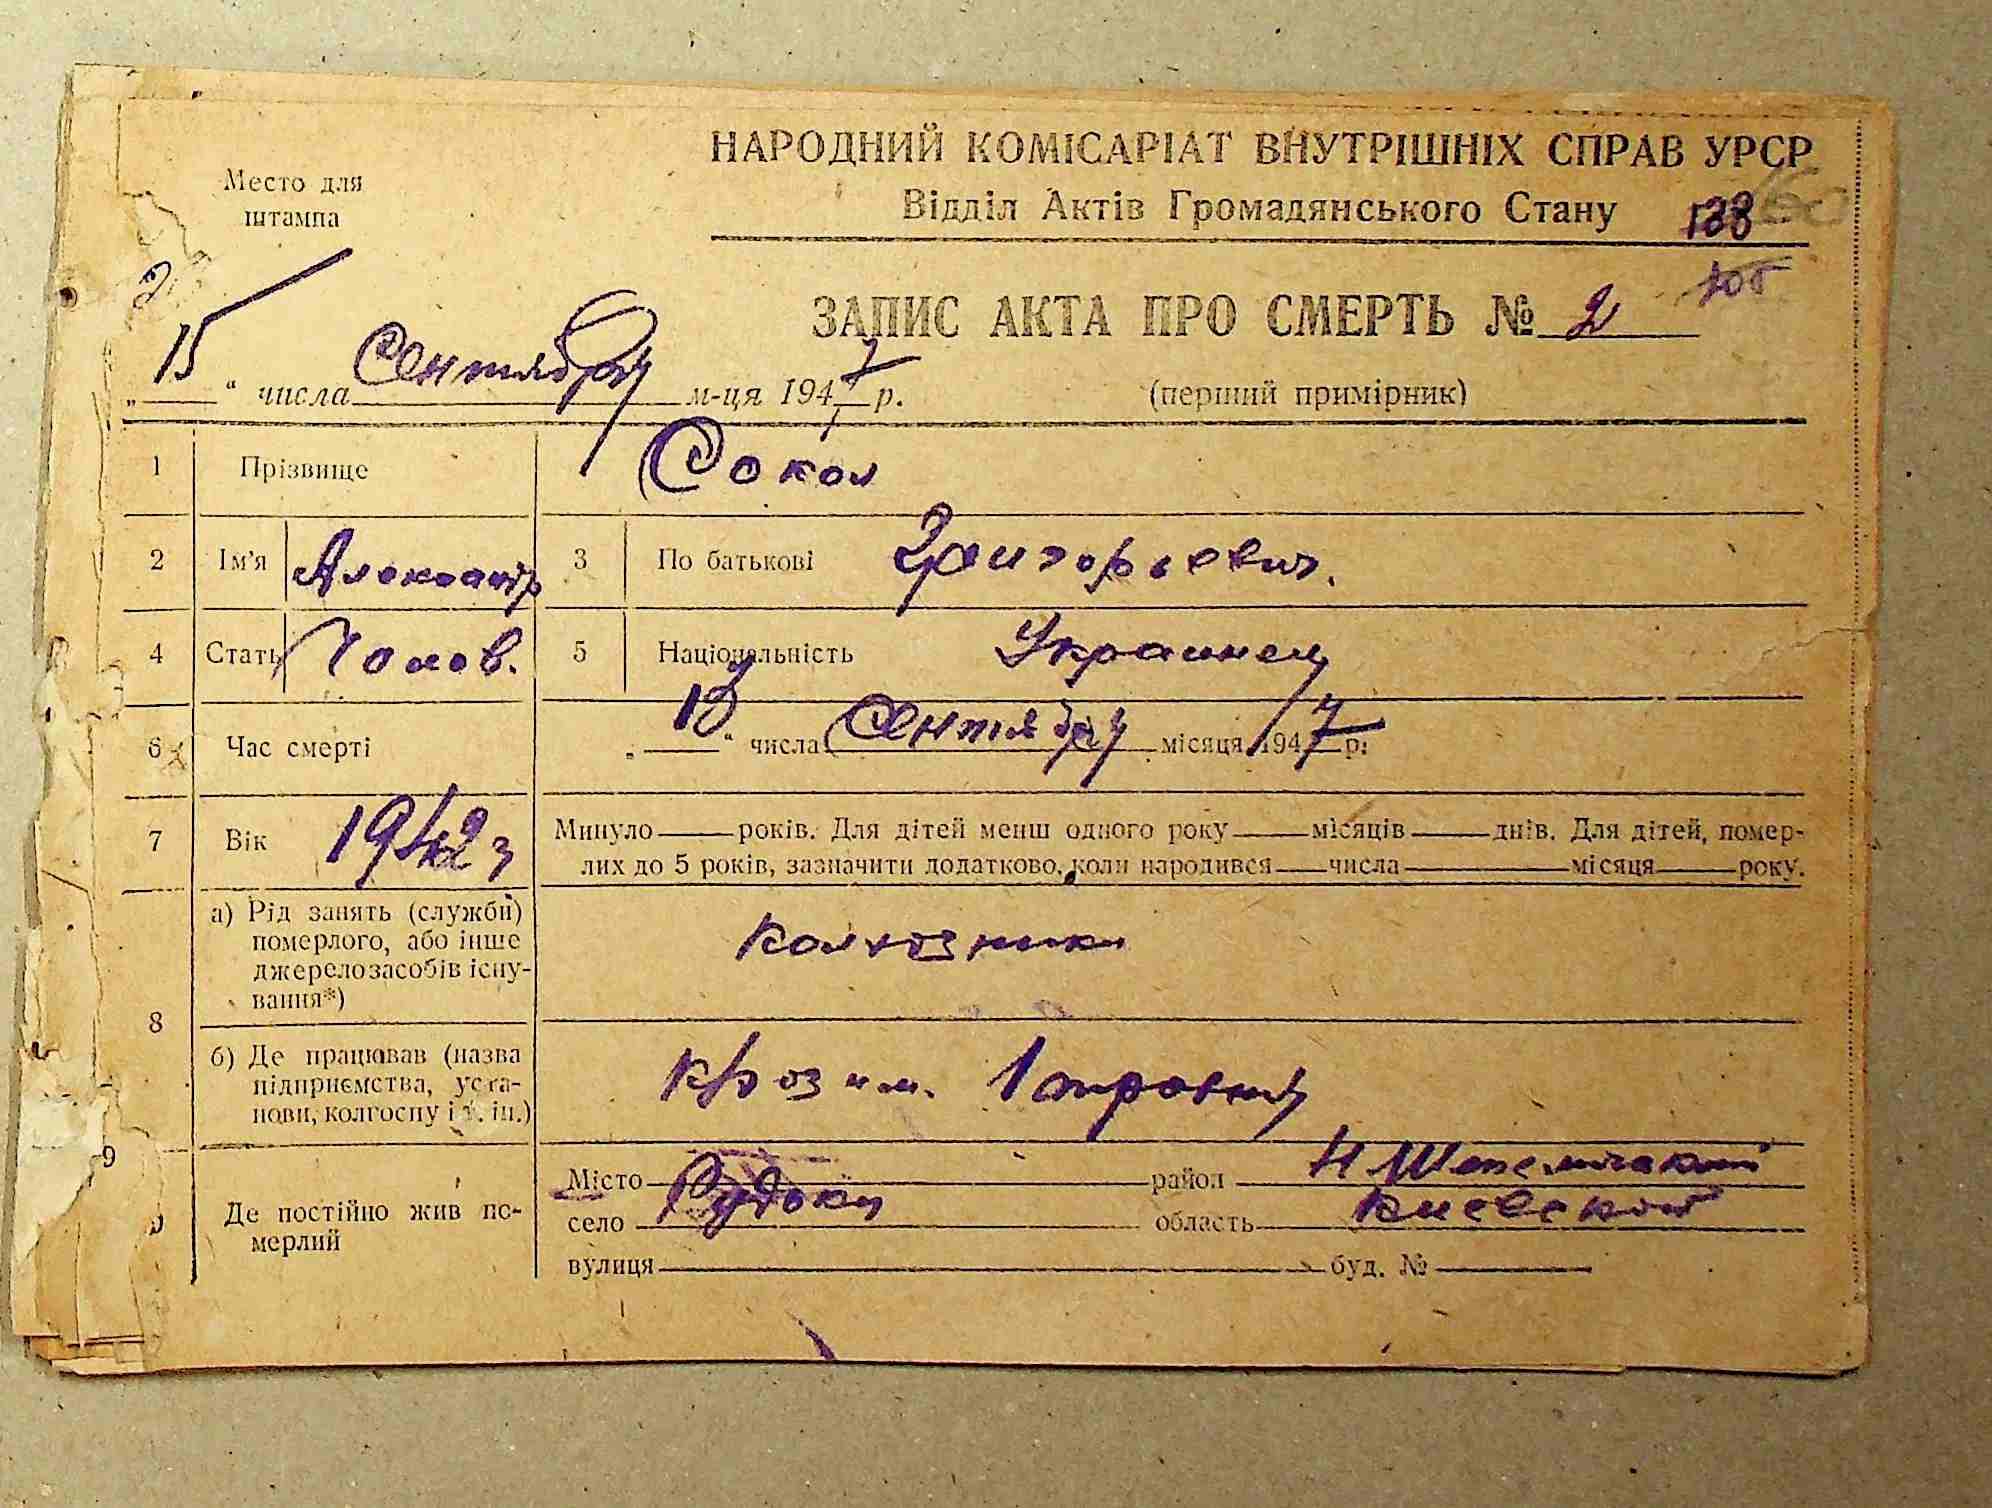 НАРОДНИЙ КОМІСАРІАТ ВНУТРІШНІХ СПРАВ УРСР
Место для штампа
Відділ Актів Громадянського Стану 138
ЗАПИС АКТА ПРО СМЕРТЬ № 2
„15“ числа Сентября м-ця 1947 р. (перший примірник)
1 Прізвище Сокол
2 Ім'я Александр 3 По батькові Григорьевич.
4 Стать Чолов. 5 Національність Украинец
6 Час смерті „13“ числа Сентября місяця 1947 р.
7 Вік 1942 г Минуло років. Для дітей менш одного року місяців днів. Для дітей, помер-
лих до 5 років, зазначити додатково, коли народився числа місяця року.
8 а) Рід занять (служби)
померлого, або інше
джерело засобів існу-
вання*)
колхозники
б) Де працював (назва
підприємства, уста-
нови, колгоспу і т. ін.)
к/хоз им.
9 Де постійно жив по-
мерлий
Місто район Н Шепеличский
село Рудьки область Киевской
вулиця буд. №